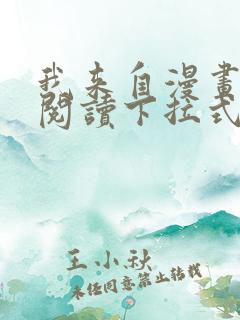 我来自漫畫
閱讀下拉式
王小秋
未经同意禁止转载